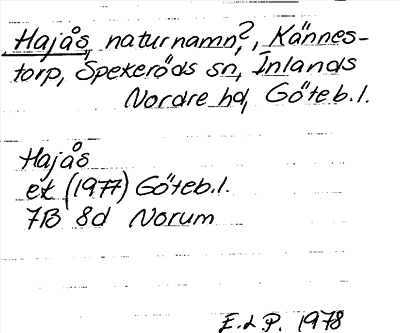 Hajås, naturnamn?, Kännes-
torp, Spekeröds sn, Inlands
Nordre hd, Göteb.l.
Hajås
ek (1977) Göteb.l.
7B 8d Norum
E.L.P. 1978